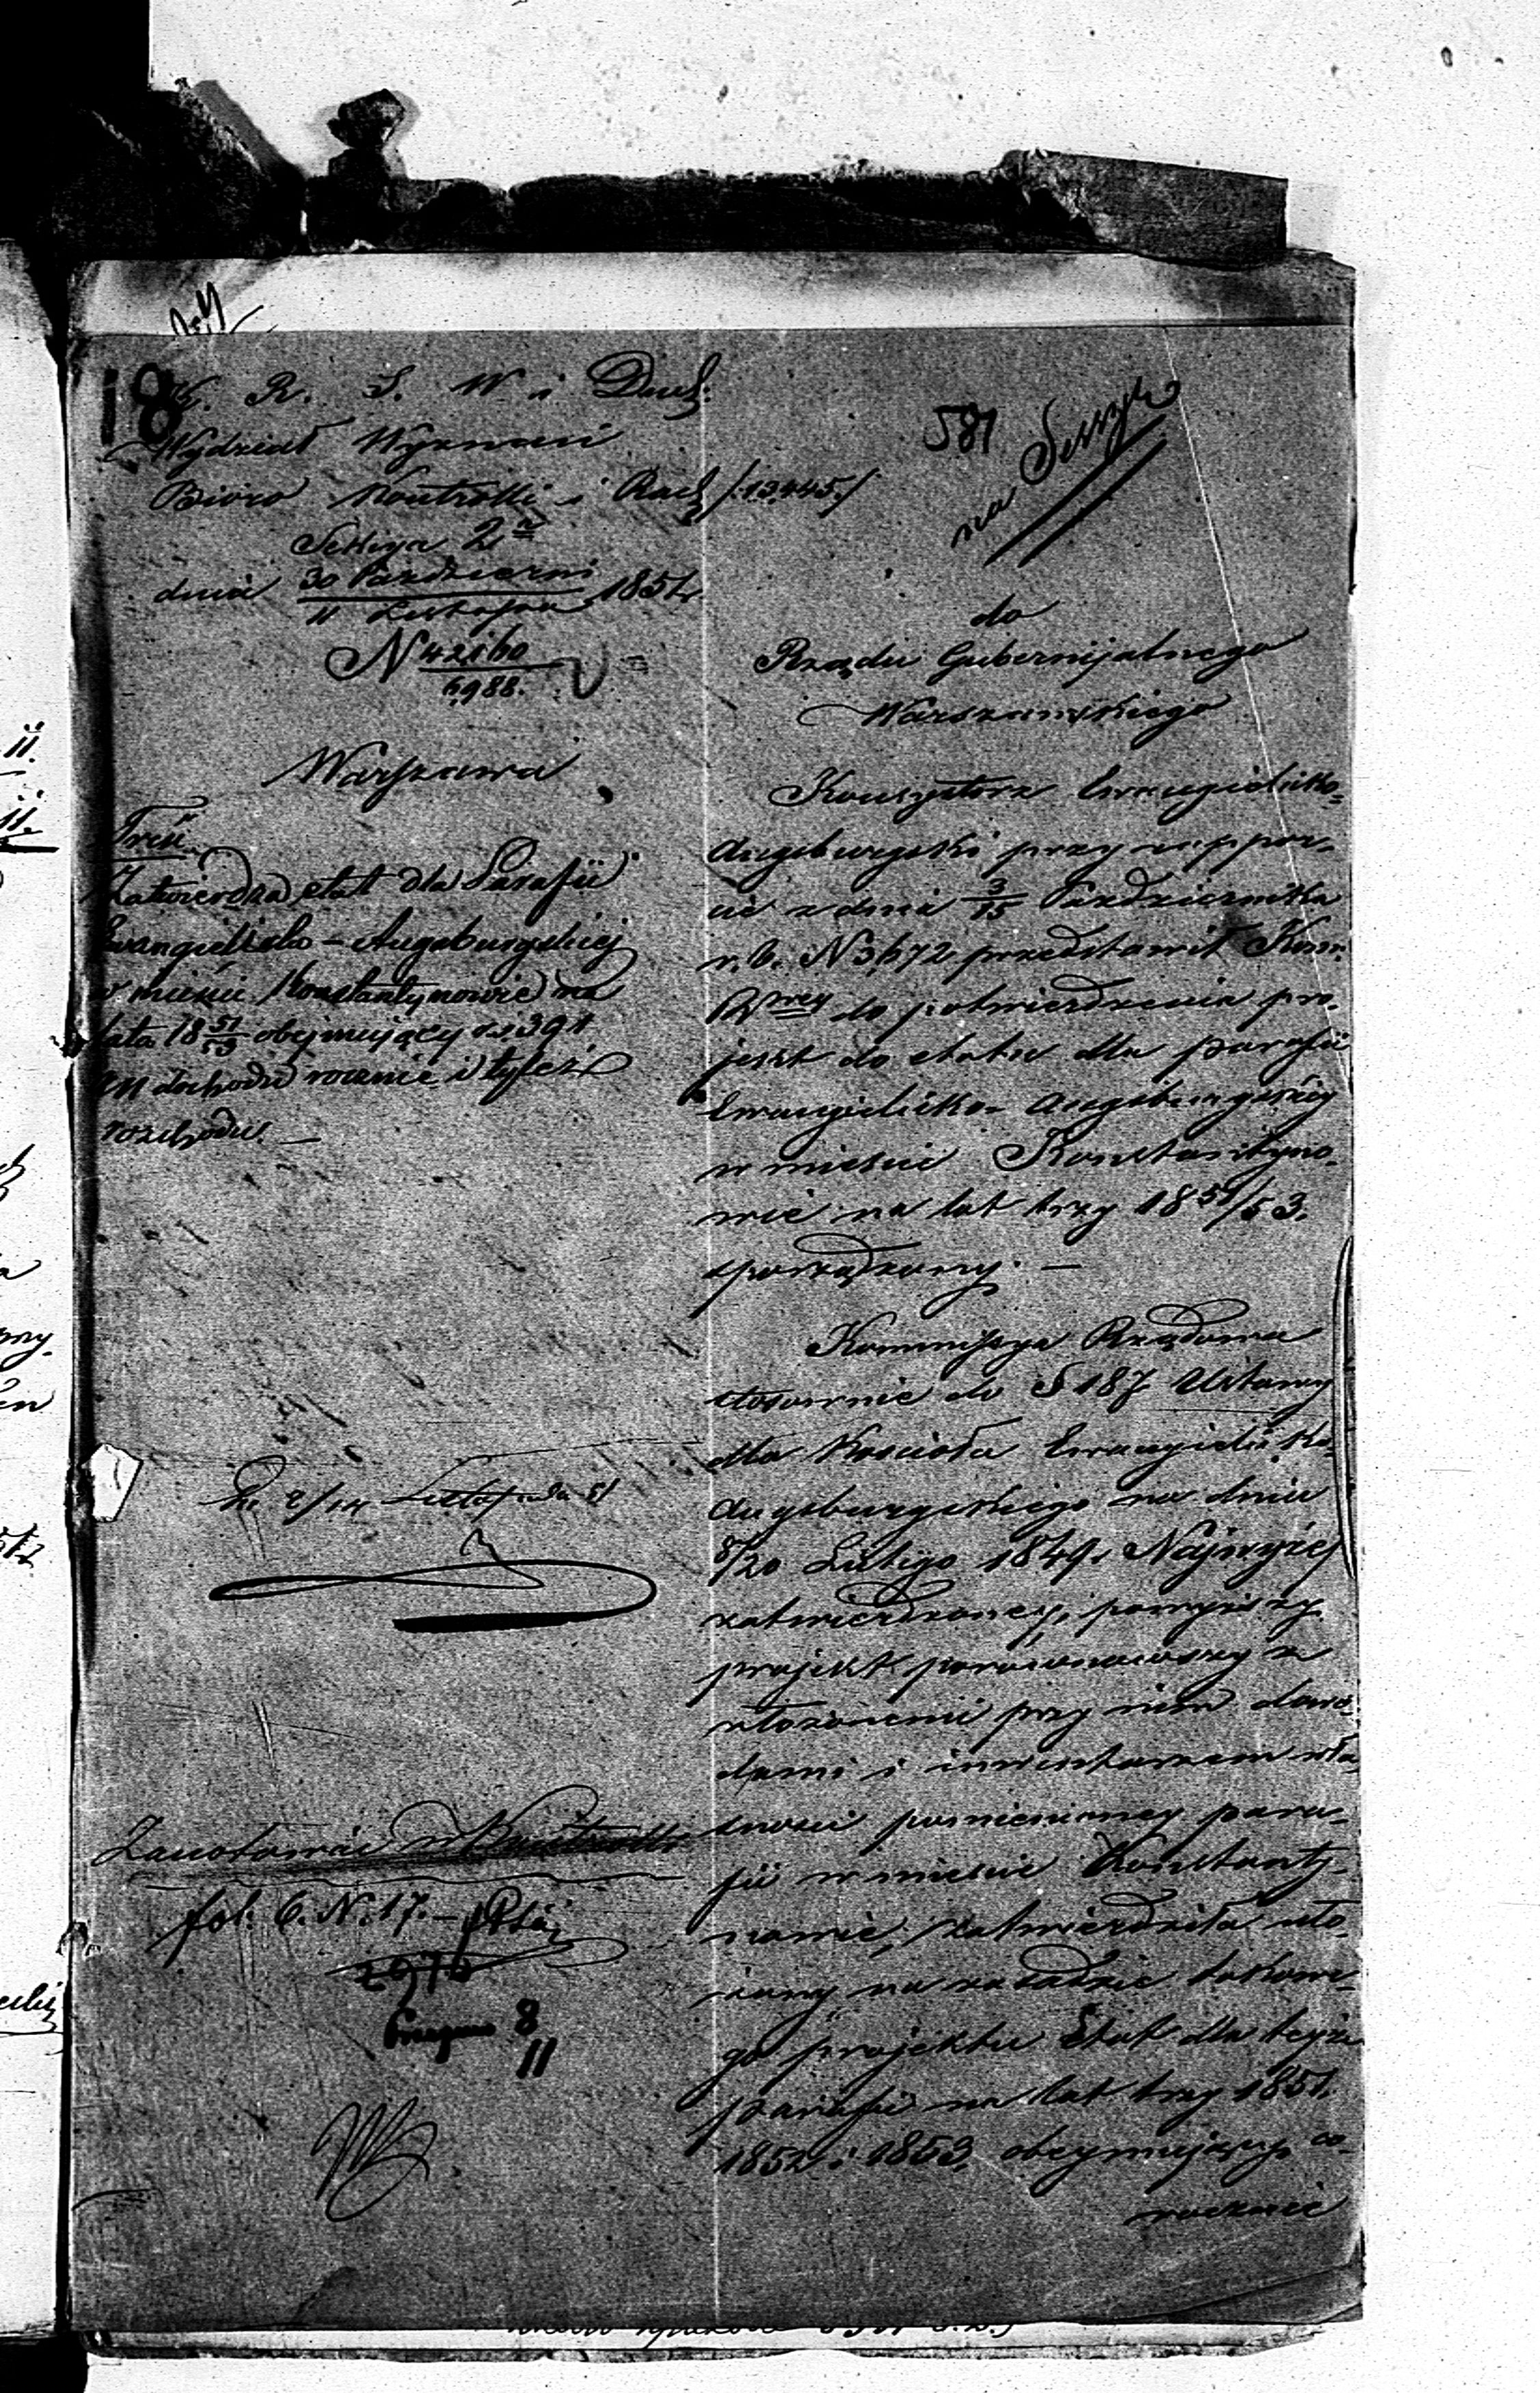 18
K. R. S. W. i Duch.
Wydział Wyznań
Biuro Kontrolli i Rach /:13,445:/
Sekcya 2a
dnia 30 Październi / 11 Listopada 1851 r.
N 42160 / 6988.
Warszawa
Treść.
Zatwierdza etat dla Parafii
Ewangielicko-Augsburgskiej
w mieście Konstantynowie na
lata 18 51/53 obejmujący rs. 391
dochodu rocznie i tyleż
rozchodu. —
2/14 Listopada 51
Zanotować w Kontrolli
fol. 6. N. 17. —
8
11
581
na Sessyą
do
Rządu Gubernijalnego
Warszawskiego
Konsystorz Ewangielicko-
Augsburgski przy rappor-
cie z dnia 3/15 Października
r. b. N 3,672 przedstawił Kom.
Rwey do potwierdzenia pro-
jekt do etatu dla parafii
Ewangielicko-Augsburgskiey
w mieście Konstantyno-
wie na lat trzy 18 51/53.
sporządzony. —
Kommissya Rządowa
stosownie do § 187 Ustawy
dla Kościoła Ewangielicko-
Augsburgskiego na dniu
8/20 Lutego 1849 r. Najwyżej
zatwierdzoney, powyższy
projekt porównawszy z
złożonemi przy nim dowo-
dami i inwentarzem wła-
sności pomienioney para-
fii w mieście Konstanty-
nowie, zatwierdziła uło-
żony na zasadzie takowe-
go projektu Etat dla teyże
parafii na lat trzy 1851.
1852 i 1853, obeymujący co-
rocznie